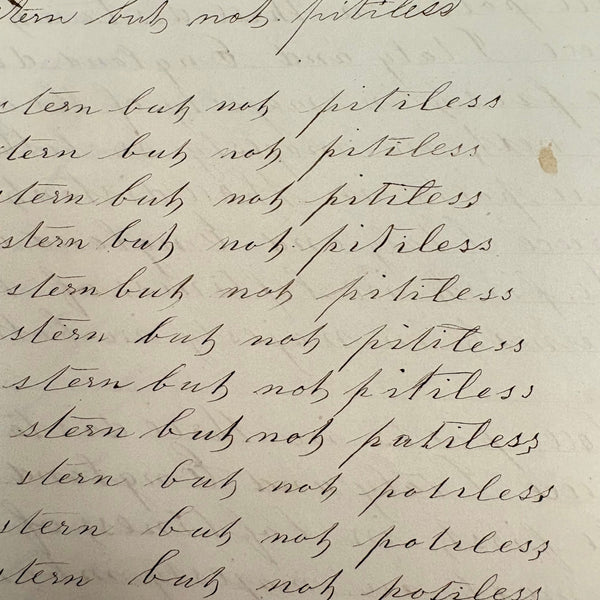 stern but not pitiless
stern but not pitiless
stern but not pitiless
stern but not pitiless
stern but not pitiless
stern but not pitiless
stern but not pitiless
stern but not pitiless
stern but not patiless
stern but not potiless
stern but not potiless
stern but not potiless